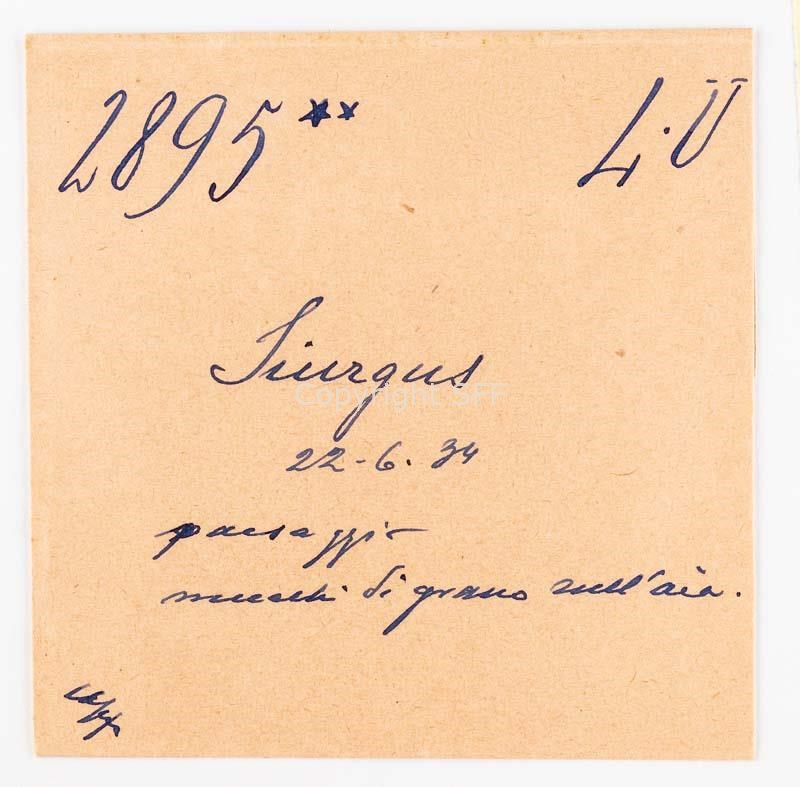 2895 **
L. U
Siurgus
Copyright SFF
22-6.34
paesaggio
mucchi di grano sull'aia.